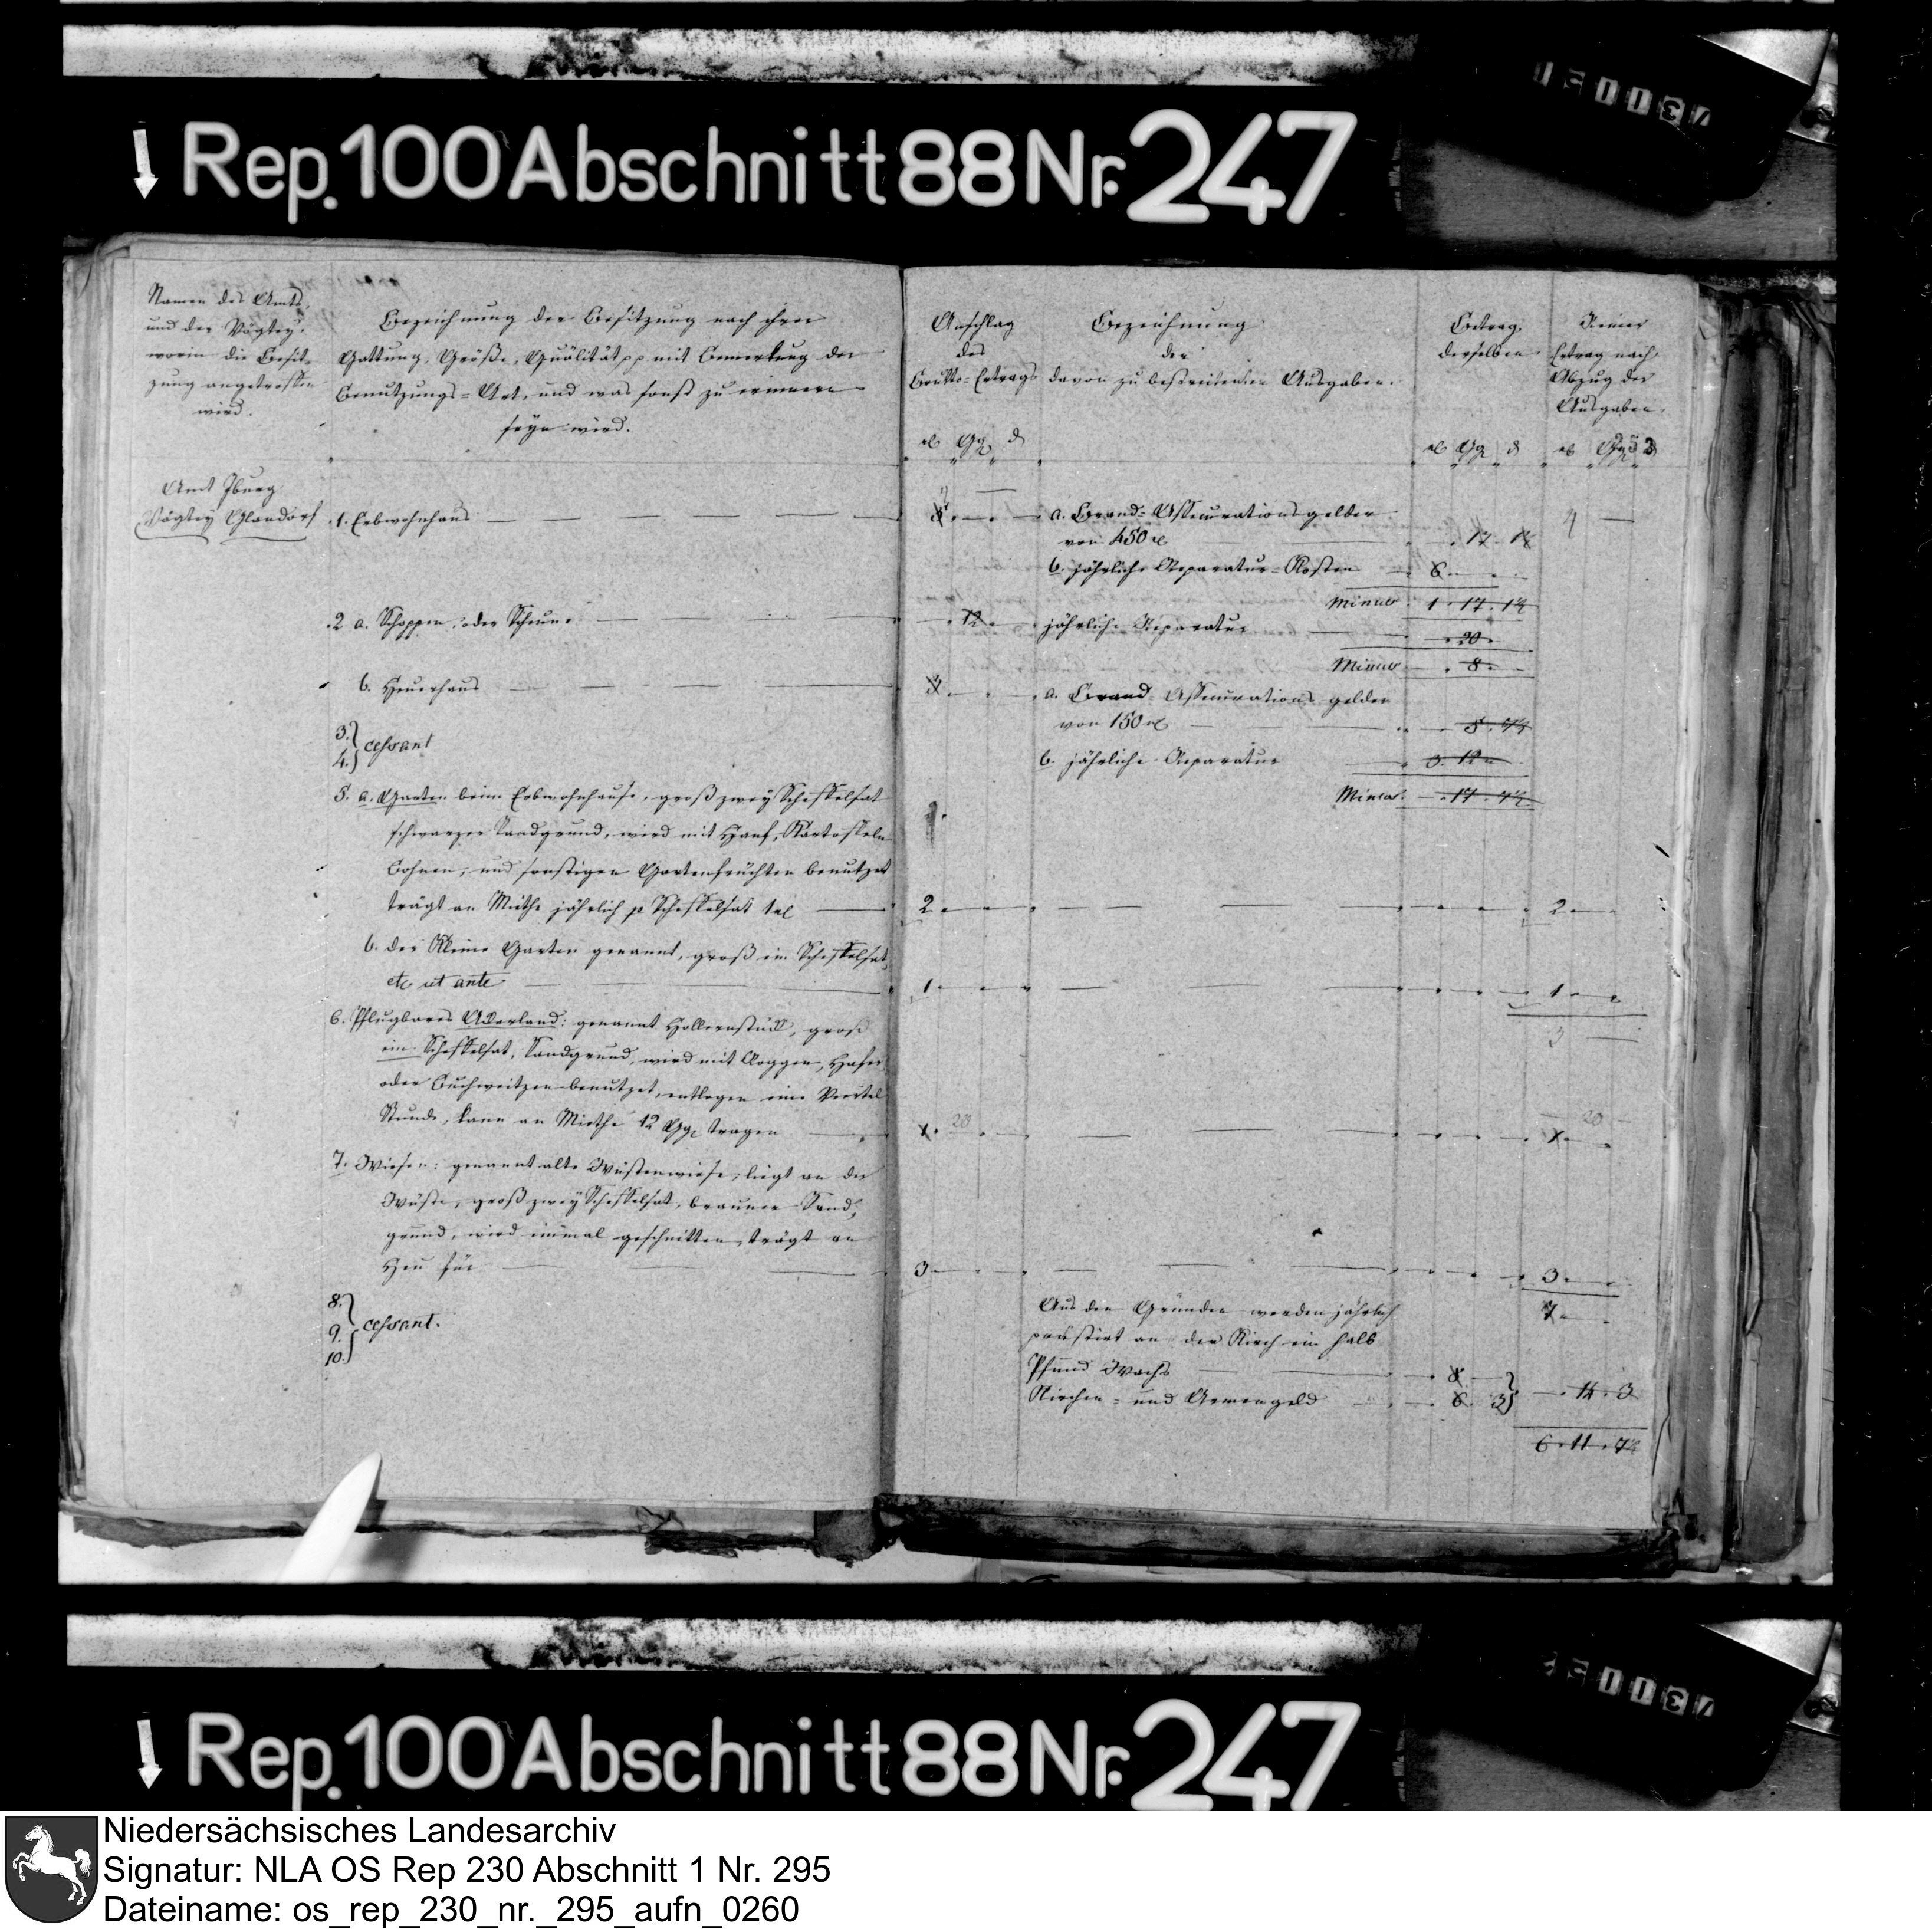 Rep. 100 Abschnitt 88 Nr. 247
Namen des Amts,
und der Vögtey,
worin die Besit-
zung angetroffen
wird.
Bezeichnung der Besitzung nach ihrer
Gattung, Größe, Qualität pp mit Bemerkung der
Benutzungs-Art, und was sonst zu erinnern
seyn wird.
Anschlag
des
Brutto-Ertrags
Bezeichnung
der
davon zu bestreitenden Ausgaben.
Betrag
derselben
Reiner
Ertrag nach
Abzug der
Ausgaben.
Amt Iburg
Vögtey Glandorf
1. Erbwohnhaus
a. Brand-Assecurationsgelder
von 450
17
b. jährliche Reparatur-Kosten
6
Minus 1. 17. 1½
2 a. Schoppen oder Scheune
12
jährliche Reparatur
20
Minus 8
b. Heuerhaus
3
a. Brand Assecurations gelder
von 150
b. jährliche Reparatur
3. 12
Minus 17
3.
4. cessant
5. a. Garten beim Erbwohnhause, groß zwey Scheffelsat
schwarzer Sandgrund, wird mit Hanf, Kartoffeln
Bohnen, und sonstigen Gartenfrüchten benutzet
trägt an Miethe jährlich p Scheffelsat 1
2
2
b. der Kleine Garten genannt, groß ein Scheffelsat,
etc ut ante
1
1
3
6. Pflugbares Ackerland: genannt Hollernstück, groß
ein Scheffelsat, Sandgrund, wird mit Roggen, Hafer
oder Buchweitzen benutzet, entlegen eine Viertel
Stunde, kann an Miethe 12 Ggr tragen
20
20
7. Wiesen: genannt alte Wüstenwiese, liegt an der
Wüste, groß zwey Scheffelsat, brauner Sand-
grund, wird einmal geschnitten, trägt an
Heu für
3
3
7
8.
9.
10. cessant.
Aus den Gründen werden jährlich
prästirt an der Kirch ein halb
Pfund Wachs
8
Kirchen- und Armengeld
6 3
14. 3
6. 11. 7½
Rep. 100 Abschnitt 88 Nr. 247
Niedersächsisches Landesarchiv
Signatur: NLA OS Rep 230 Abschnitt 1 Nr. 295
Dateiname: os_rep_230_nr._295_aufn_0260